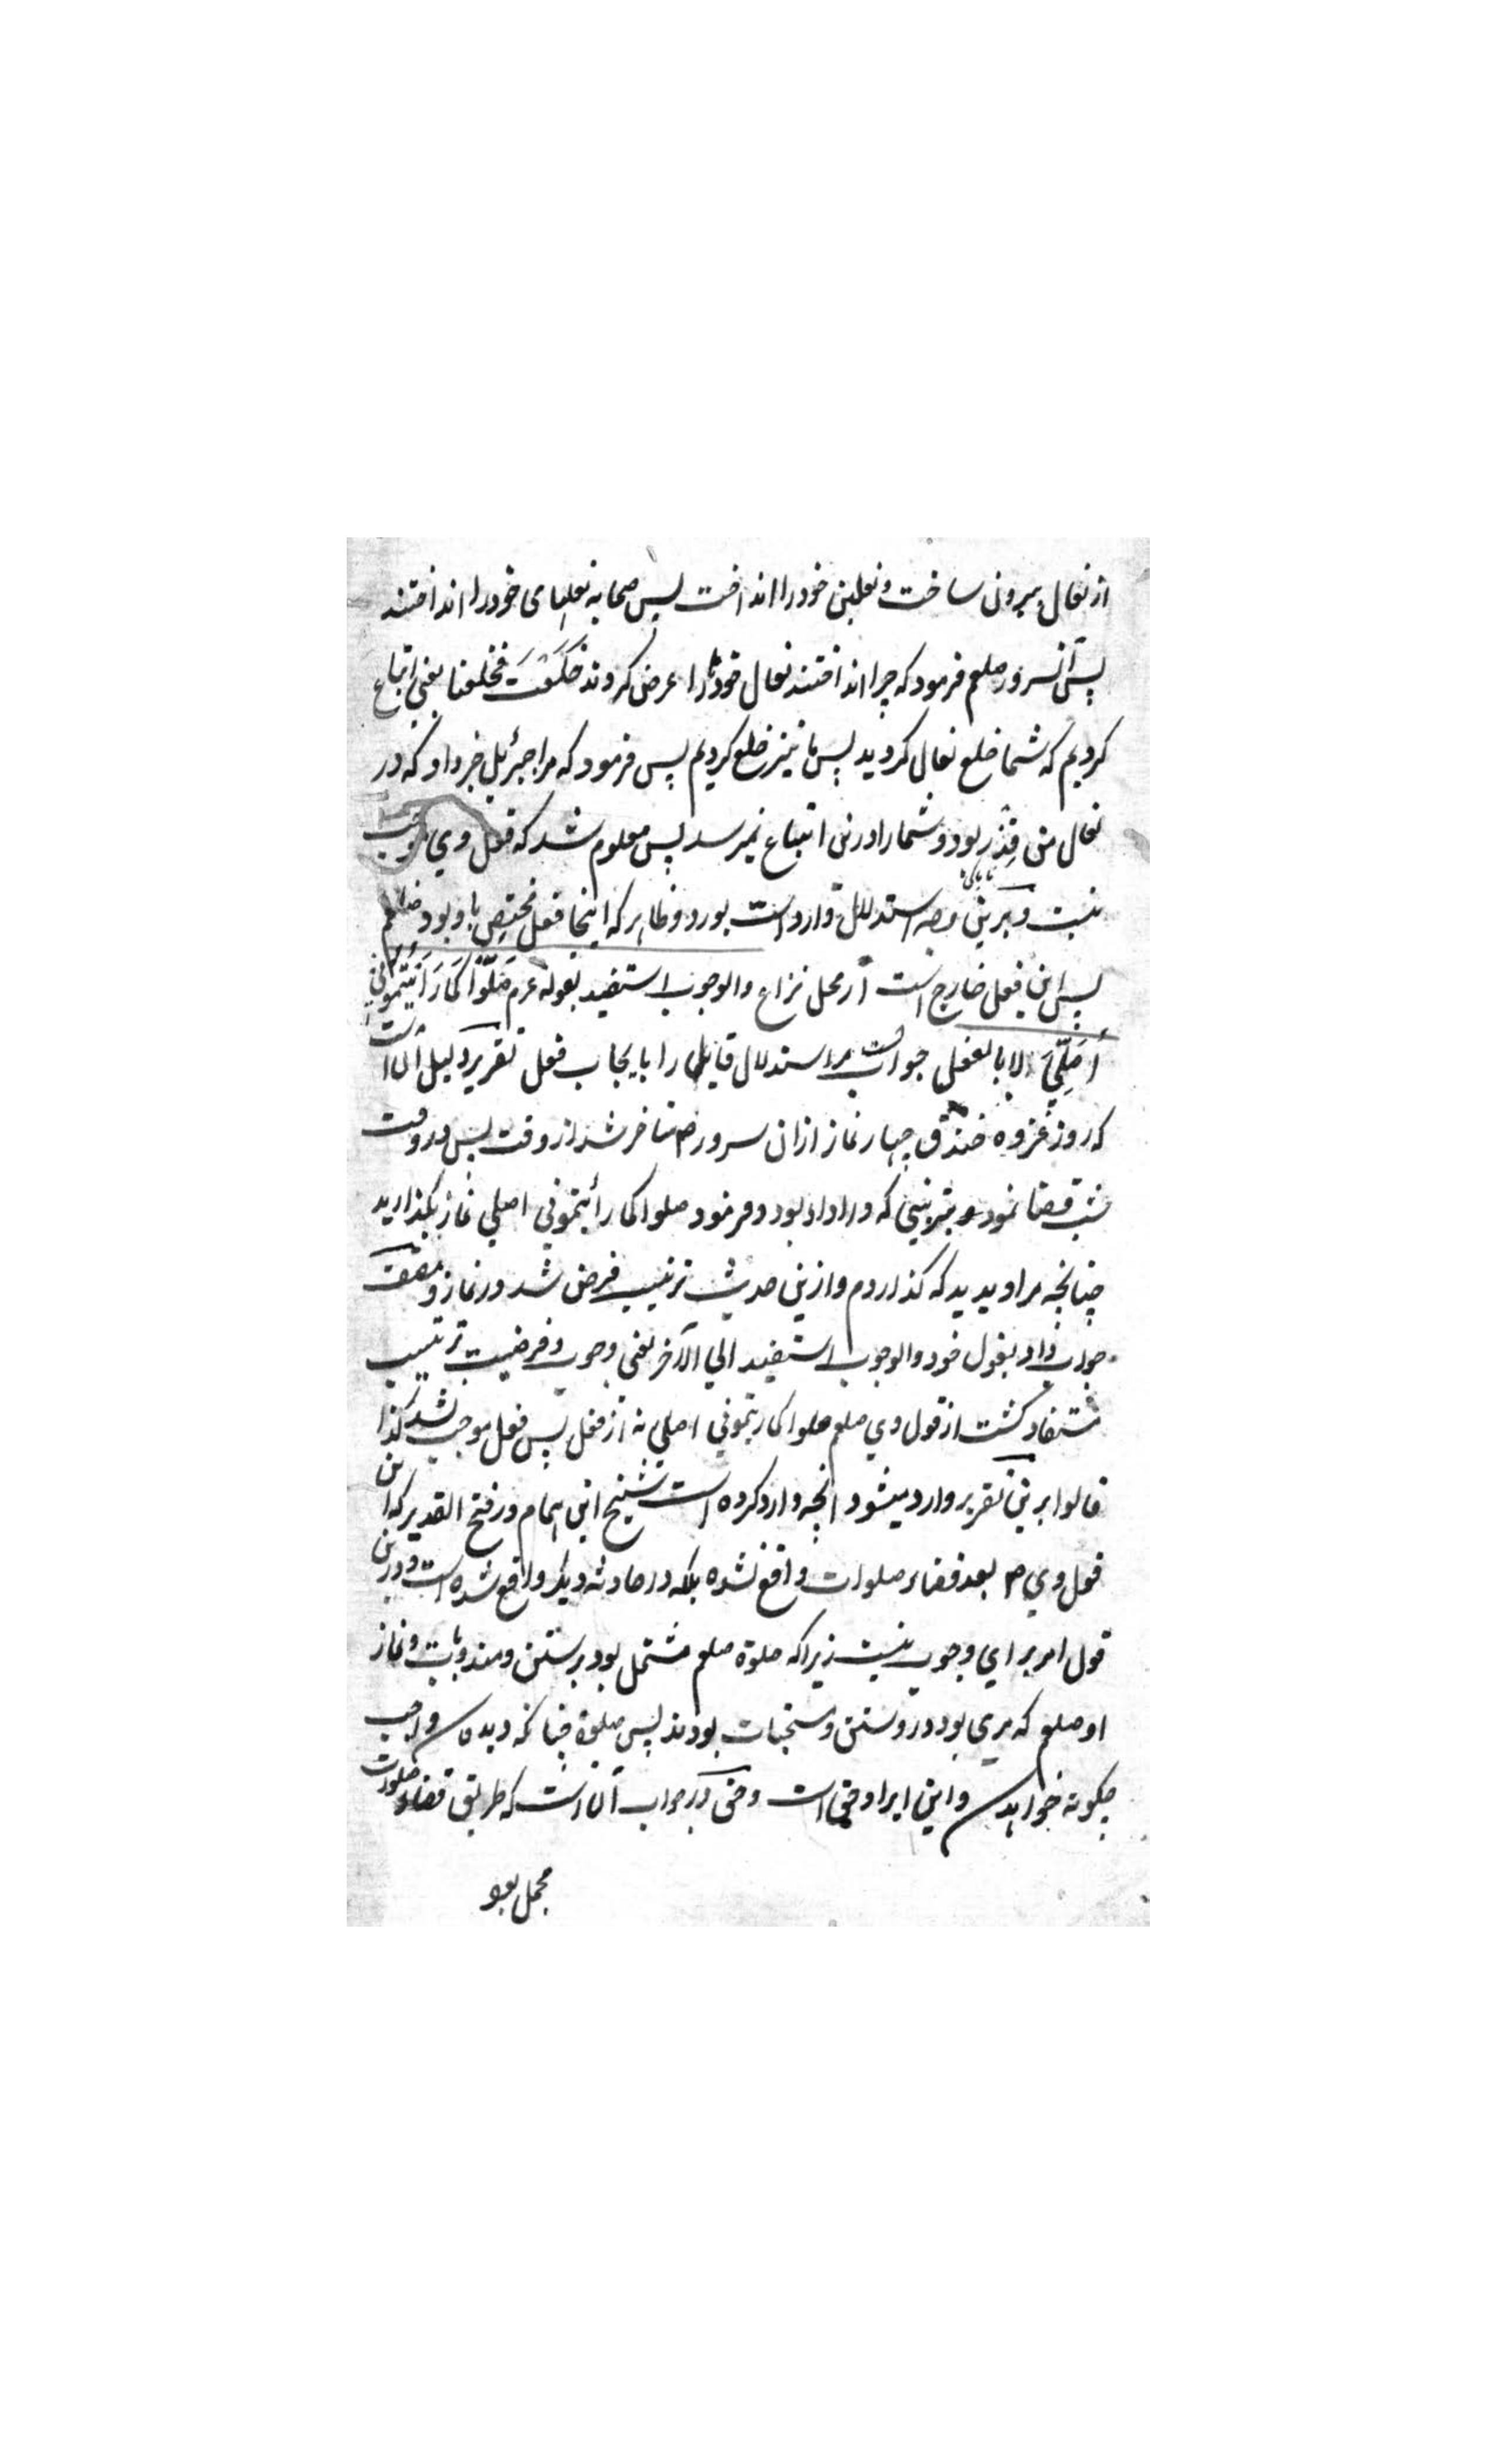 از نعال بیرون ساخت و نعلین خود را انداخت پس صحابه نعلهای خود را انداختند
پس آنسرور صلعم فرمود که چرا انداختند نعال خود را عرض کردند خَلَعْتَ فخلعنا یعنی اتباع
کردیم که شما خلع نعال کردید پس ما نیز خلع کردیم پس فرمود که مرا جبرئیل خبر داد که در
نعال من قذر بود و شما را درین اتباع نمیرسد پس معلوم شد که فعل وی موجب
ناپاکی
نیست و برین وجه استدلال وارد است بورود ظاهر که اینجا فعل مختص باو بود صلعم
پس این فعل خارج است از محل نزاع والوجوب استفید بقوله عم صَلُّوا کَمَا رَأَیْتُمُونِی
أُصَلِّی لا بالفعل جوابست مر استدلال قایل را بایجاب فعل تقریر دلیل آن است
که روز غزوه خندق چهار نماز ازان سرور ص متاخر شد از وقت پس در وقت
شب قضا نمود بترتیبی که در ادا بود و فرمود صلوا کما رأیتمونی اصلی نماز بگذارید
چنانچه مرا دیدید که گذاردم و ازین حدیث ترتیب فرض شد در نماز و مصنف
جواب داد بقول خود والوجوب استفید الی الآخر یعنی وجوب و فرضیت ترتیب
مستفاد گشت از قول وی صلعم صلوا کما رایتمونی اصلی نه از فعل پس فعل موجب نشد کذا
قالوا برین تقریر وارد میشود آنچه وارد کرده است شیخ ابن الهمام در فتح القدیر که این
قول وی ص بعد قضاء صلوات واقع نشده بلکه در حادثه دیگر واقع شده است و درین
قول امر برای وجوب نیست زیرا که صلوة صلعم مشتمل بود بر سنن و مندوبات و نماز
او صلعم که مرئی بود در و سنن و مستحبات بودند پس صلوة چنانکه دیده واجب
چگونه خواهد و این ایراد وقتی است وحق در جواب آنست که طریق قضاء صلوات
مجمل بود